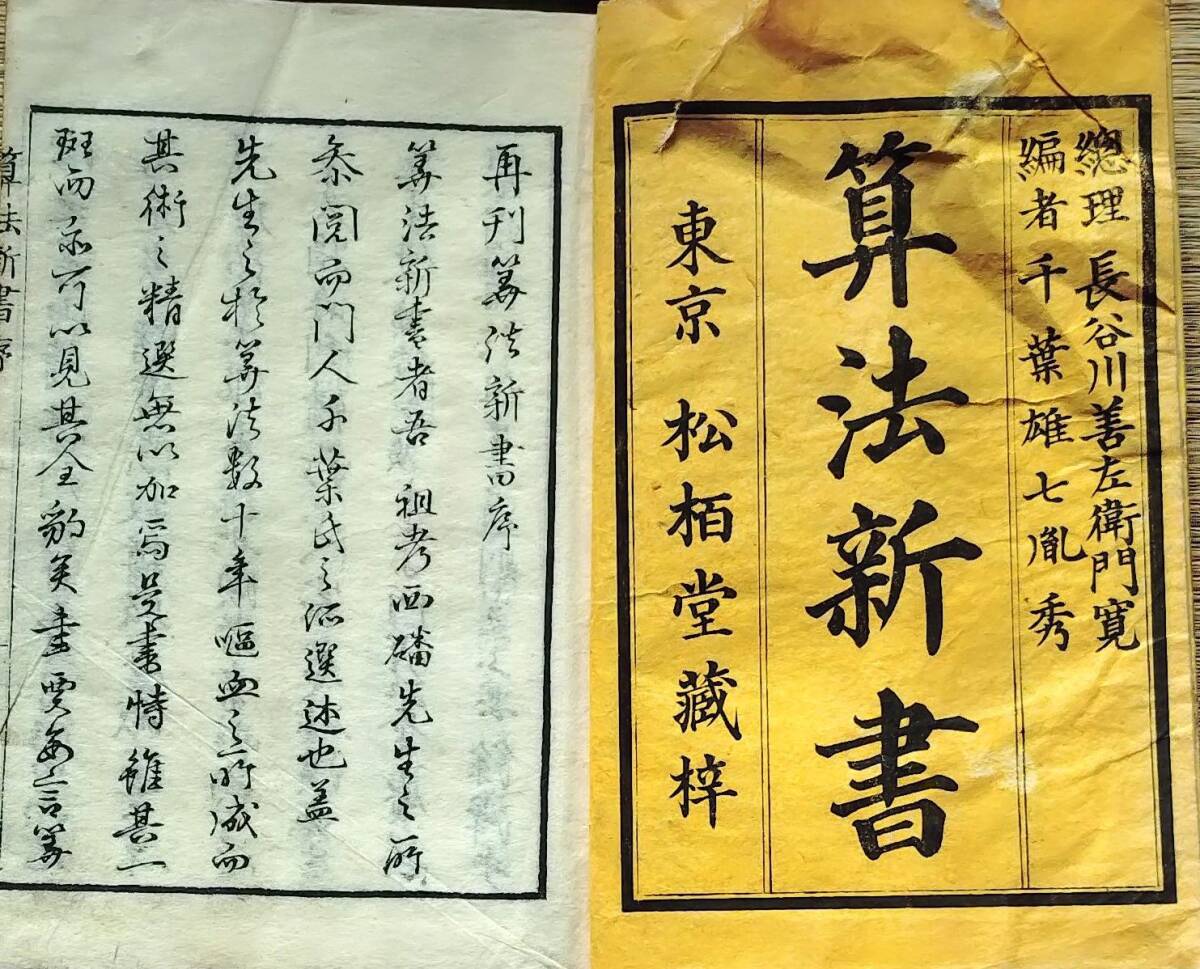 總理 長谷川善左衛門寛
編者 千葉雄七胤秀
算法新書
東京 松栢堂藏梓
再刊算法新書序
算法新書者吾 祖考西磻先生之所
叅閲而門人千葉氏之所選述也盖
先生之於算法数十年嘔血之所成而
其術之精選無以加焉是書特雖其一
斑而亦可以見其全豹矣 每言算
算法新書序